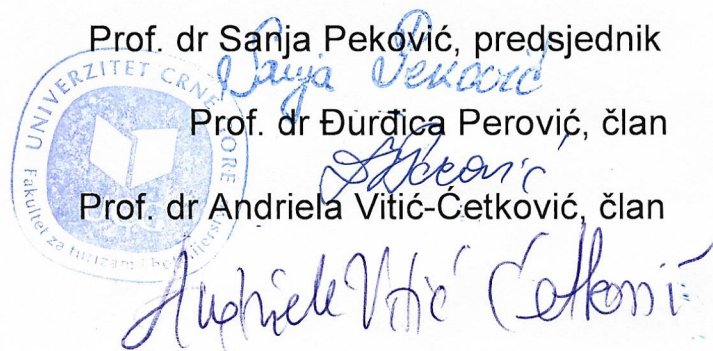 Prof. dr Sanja Peković, predsjednik
Sanja Peković
Prof. dr Đurđica Perović, član
Prof. dr Andriela Vitić-Ćetković, član
Andriela Vitić Ćetković
UNIVERZITET CRNE GORE
Fakultet za turizam i hotelijerstvo